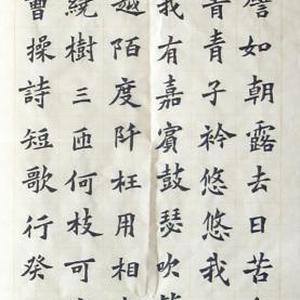 譬如朝露去日苦
青青子衿悠悠我
我有嘉賓鼓瑟吹
越陌度阡枉用相
繞樹三匝何枝可
曹操詩短歌行癸